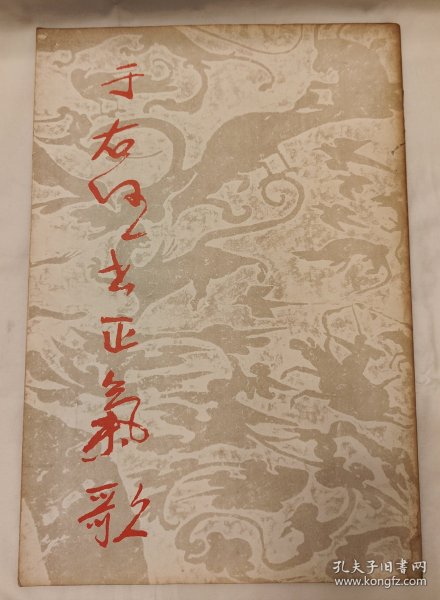 于右任书正氣歌
孔夫子旧书网
www.kongfz.com